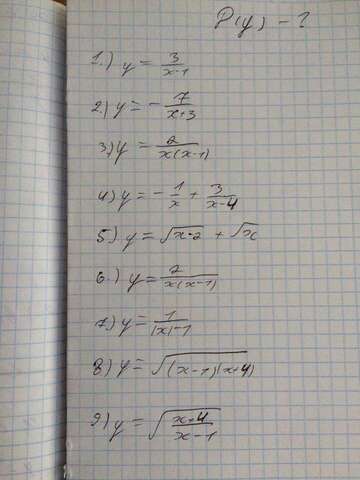 D(y) - ?
1.) y = 3/(x-1)
2.) y = - 7/(x+3)
3.) y = 2/(x(x-1))
4) y = - 1/x + 3/(x-4)
5.) y = √(x-2) + √x
6.) y = 2/(x(x-1))
7.) y = 1/(|x|-1)
8.) y = √((x-1)(x+4))
9.) y = √((x+4)/(x-1))